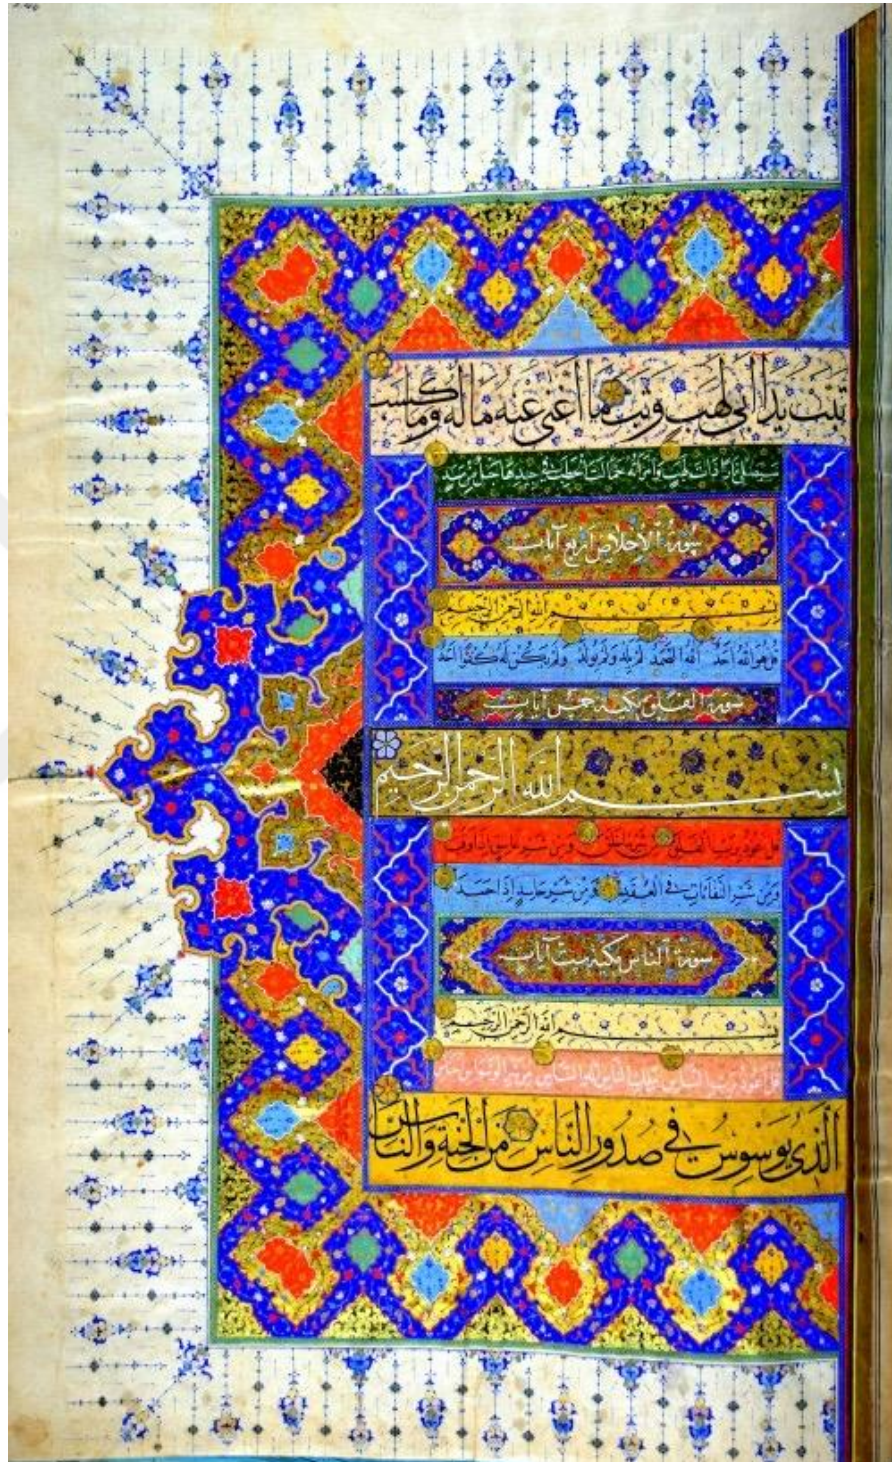 تبت يدا أبى لهب وتب ما أغنى عنه ماله وما كسب
سيصلى نارا ذات لهب وامرأته حمالة الحطب فى جيدها حبل من مسد
سورة الإخلاص أربع آيات
بسم الله الرحمن الرحيم
قل هو الله أحد الله الصمد لم يلد ولم يولد ولم يكن له كفوا أحد
سورة الفلق مكية خمس آيات
بسم الله الرحمن الرحيم
قل أعوذ برب الفلق من شر ما خلق ومن شر غاسق إذا وقب
ومن شر النفاثات فى العقد ومن شر حاسد إذا حسد
سورة الناس مكية ست آيات
بسم الله الرحمن الرحيم
قل أعوذ برب الناس ملك الناس إله الناس من شر الوسواس الخناس
الذى يوسوس فى صدور الناس من الجنة والناس